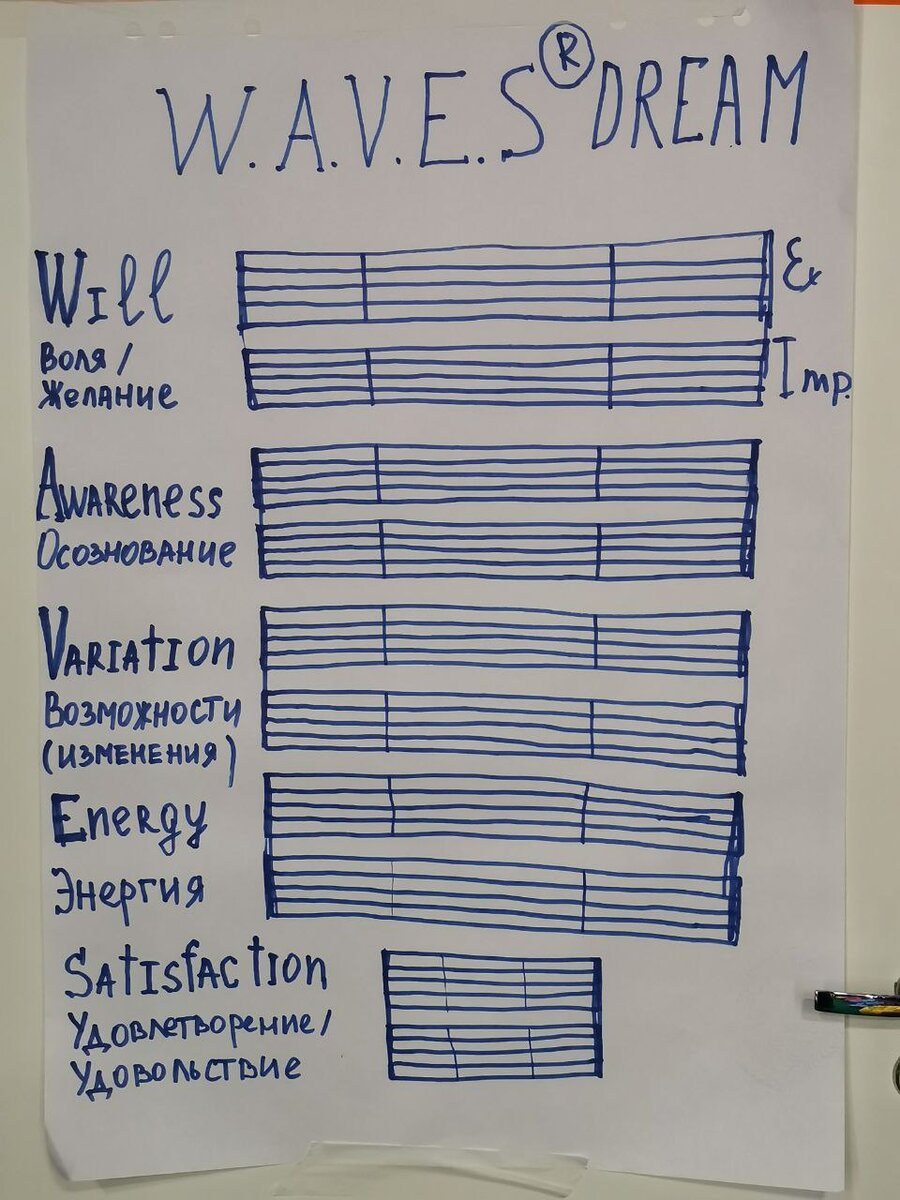 W.A.V.E.S® DREAM
Will
Ex
Воля /
Желание
Imp.
Awareness
Осознование
Variation
Возможности
(изменения)
Energy
Энергия
Satisfaction
Удовлетворение/
Удовольствие